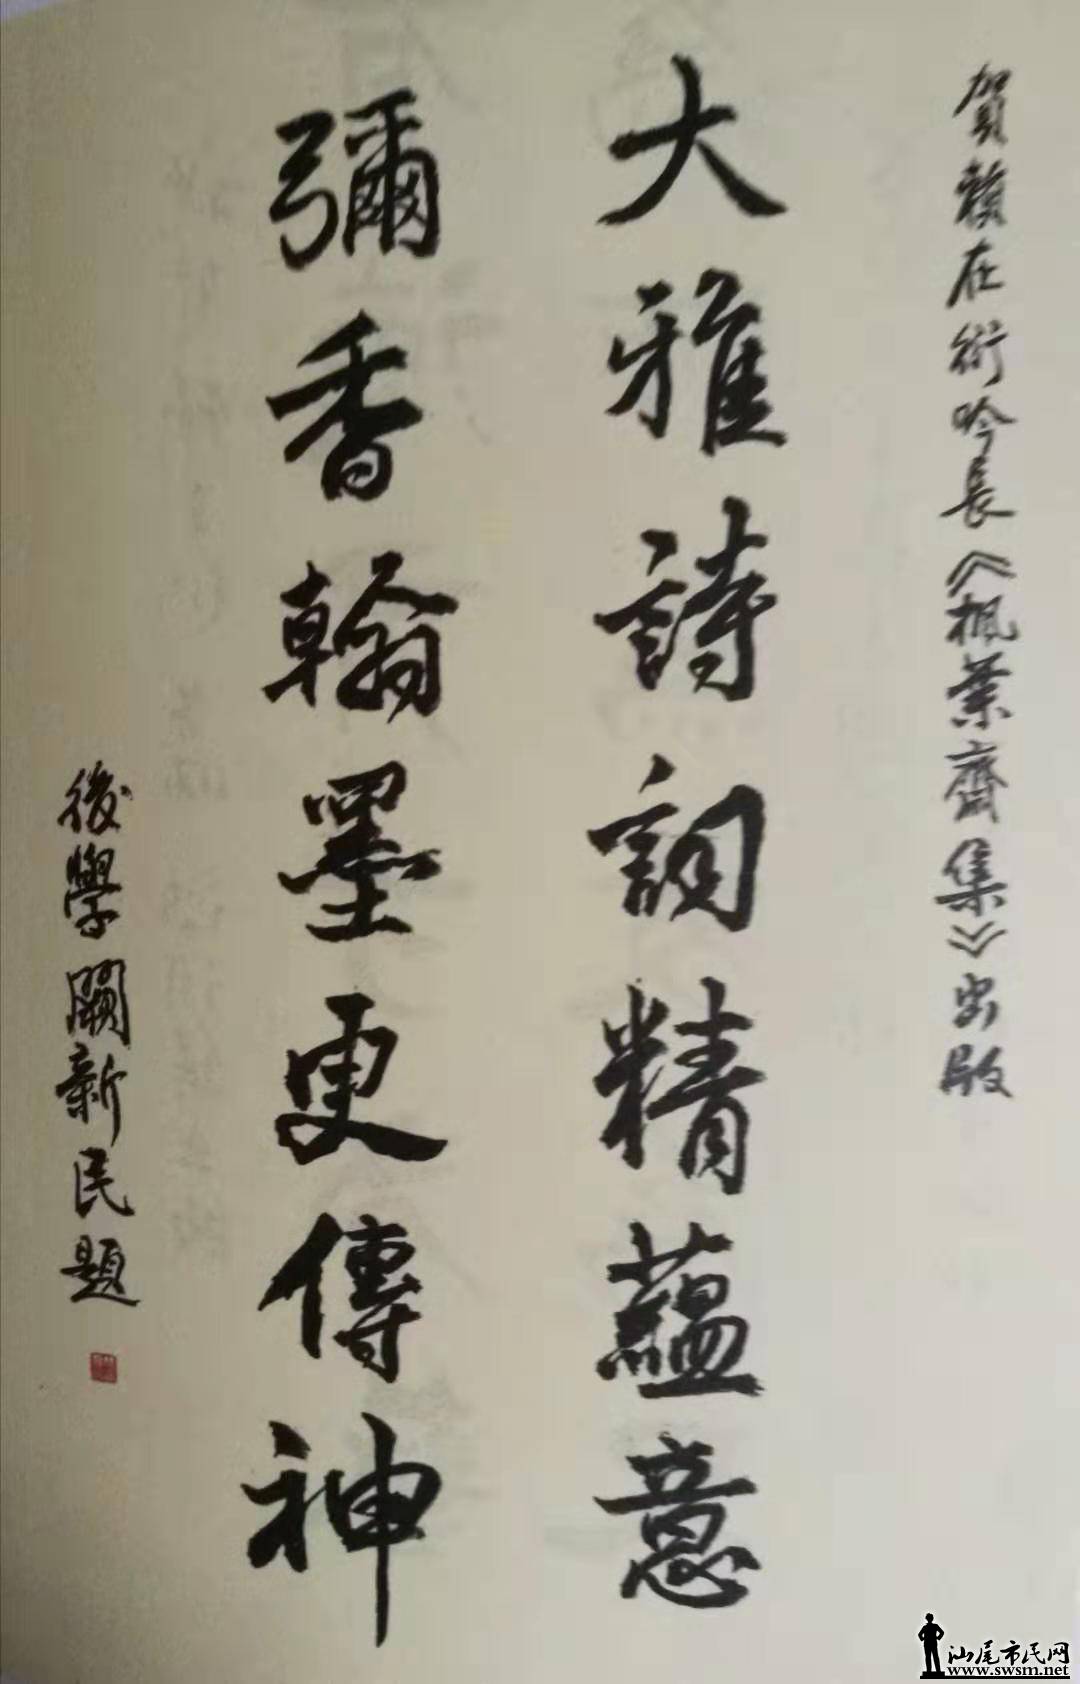 賀賴在衍吟長《楓葉齋集》出版
大雅詩詞精蘊意
彌香翰墨更傳神
後學關新民題
汕尾市民网
www.swsm.net